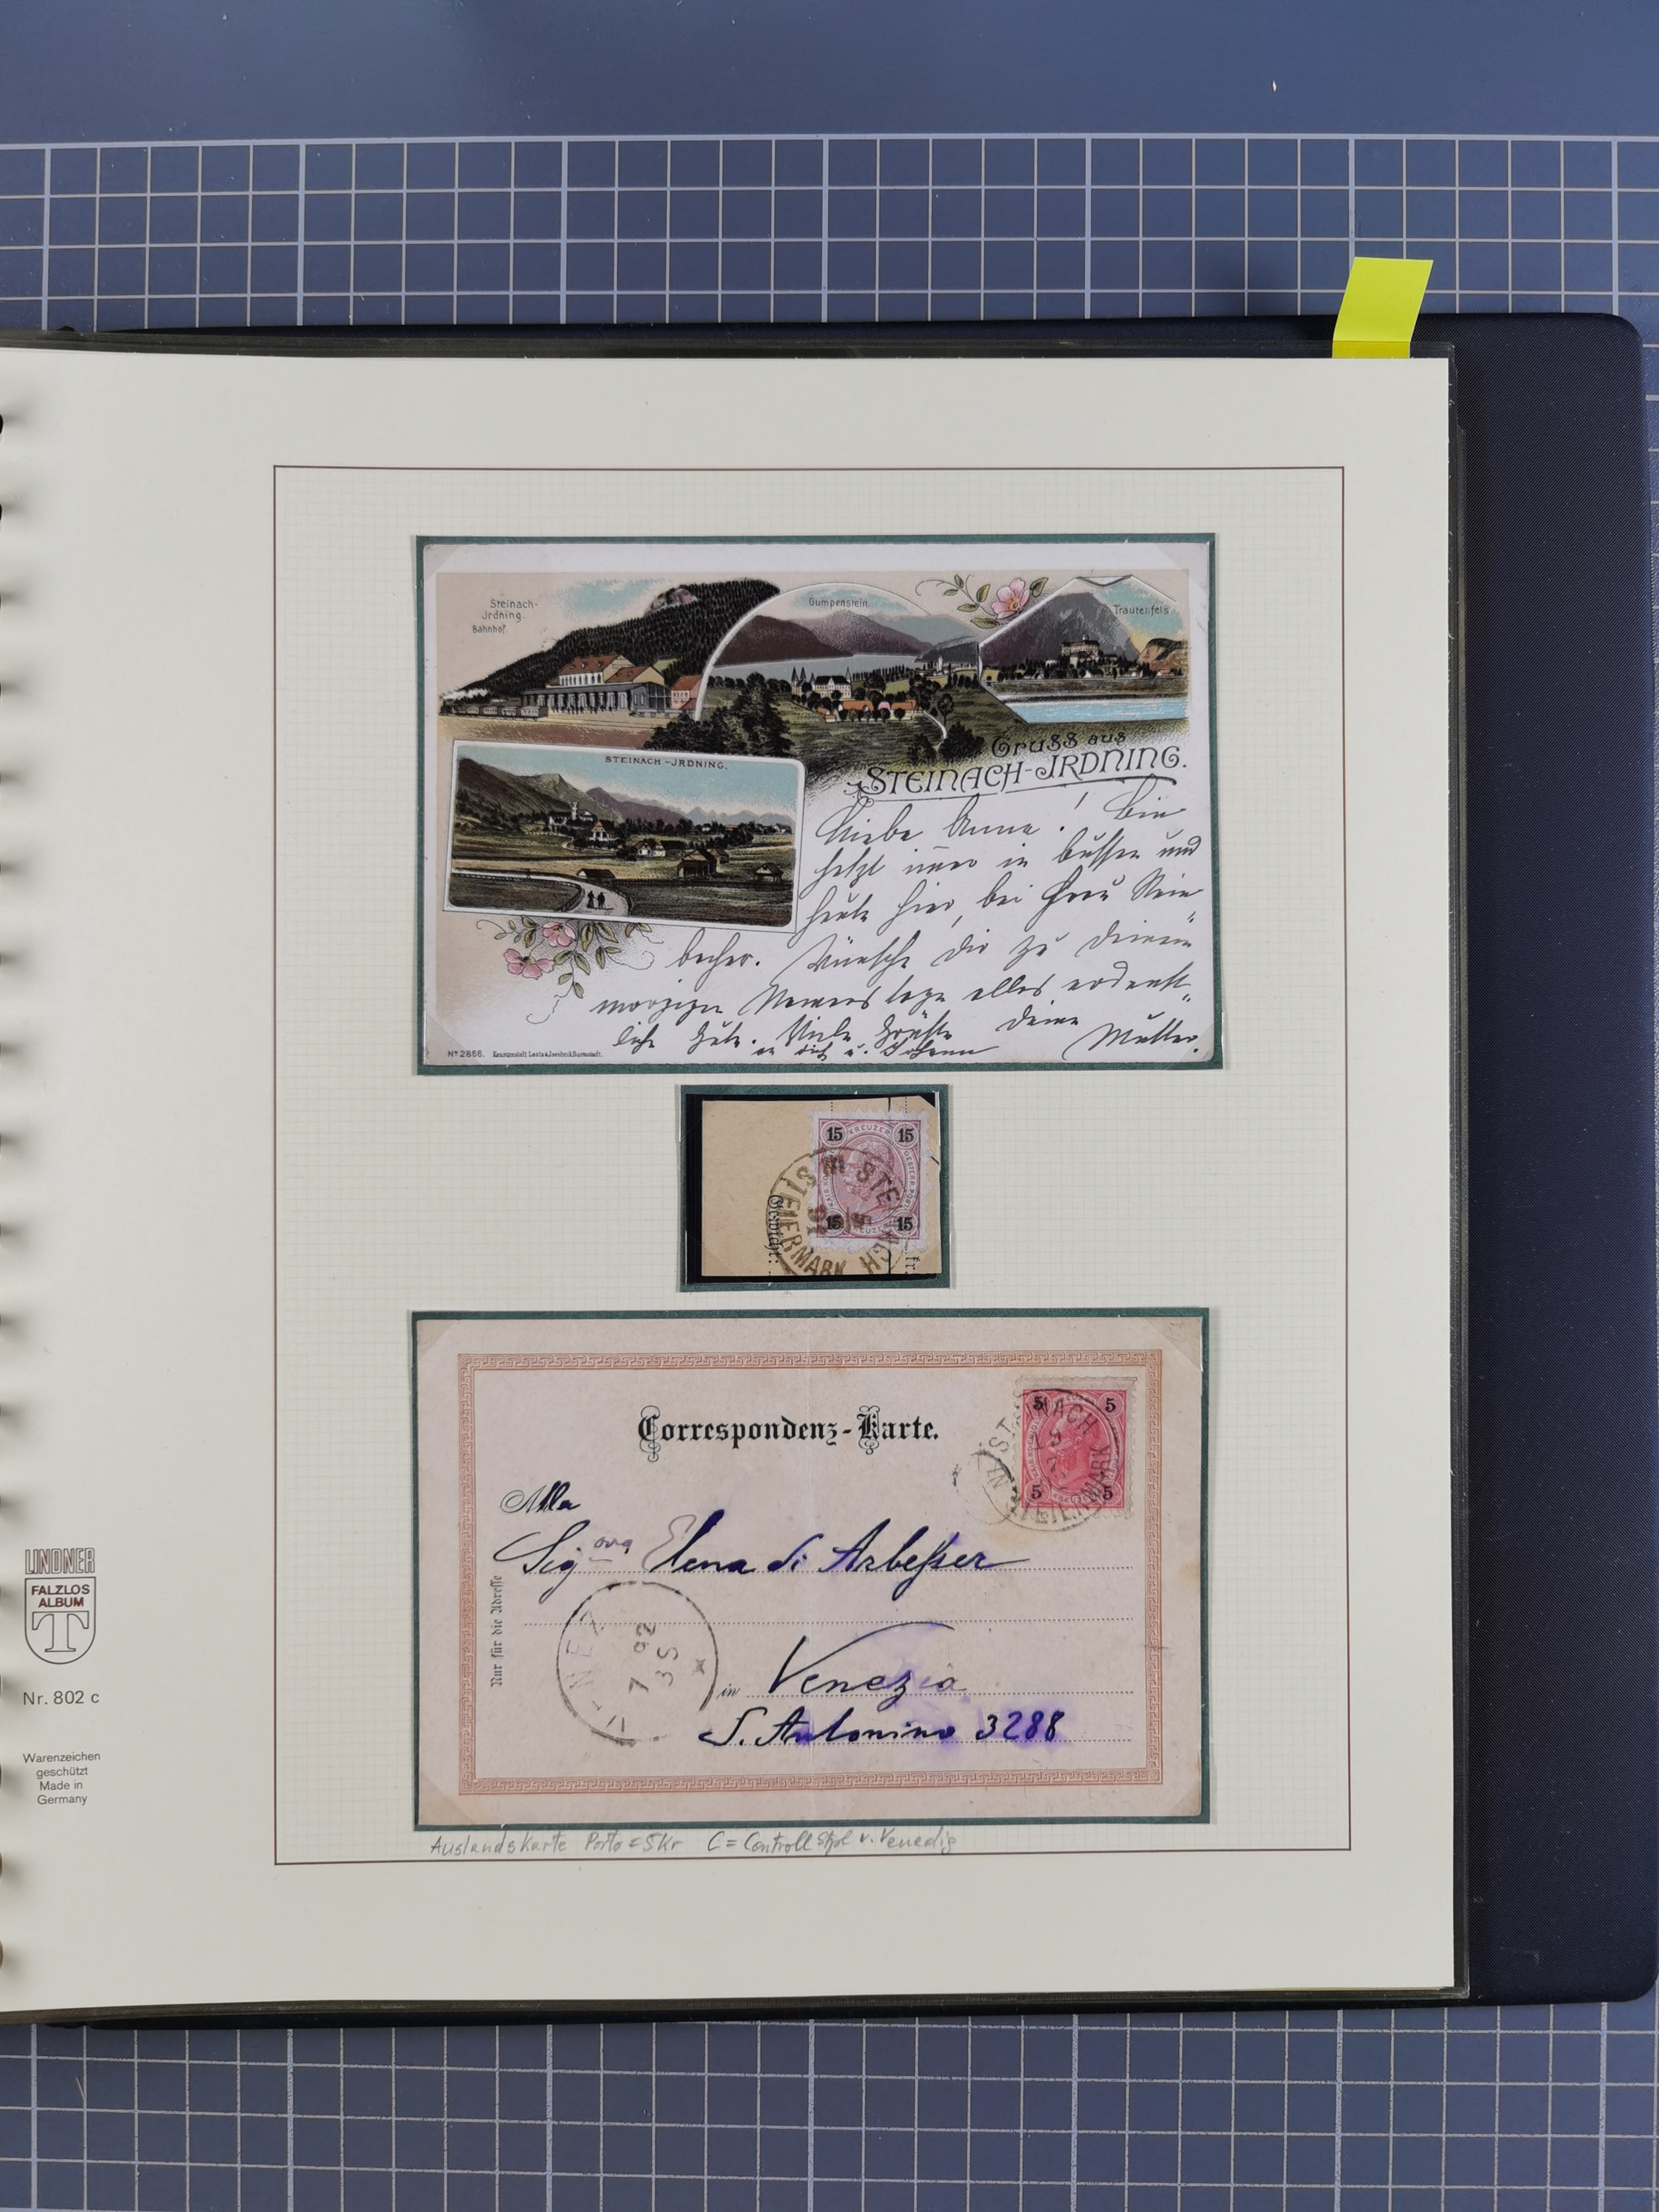 Steinach-
Jrdning.
Bahnhof.
Gumpenstein.
Trautenfels
STEINACH-JRDNING.
Gruss aus
STEINACH-JRDNING.
Liebe Anna! Bin
jetzt in und
heute hier, bei Frau Stein„
becher. Wünsche dir zu deinem
morgigen Namenstage alles erdenk„
liche Gute. Viele Grüße deine Mutter.
an dich u. Johann
No 2866. Kunstanstalt Lautz & Jsenbeck Darmstadt.
15 KREUZER 15
15 15
STEINACH
STEIERMARK
Gewicht:
fr.
Correspondenz-Karte.
5 5
5 5
STEINACH
STEIERMARK
Alla
Sigora Elena di Arbesser
Nur für die Adresse
7 92
3S
in Venezia
S. Antonino 3288
Auslandskarte Porto = 5Kr C = Controll Stpl v. Venedig
LINDNER
FALZLOS
ALBUM
T
Nr. 802 c
Warenzeichen
geschützt
Made in
Germany